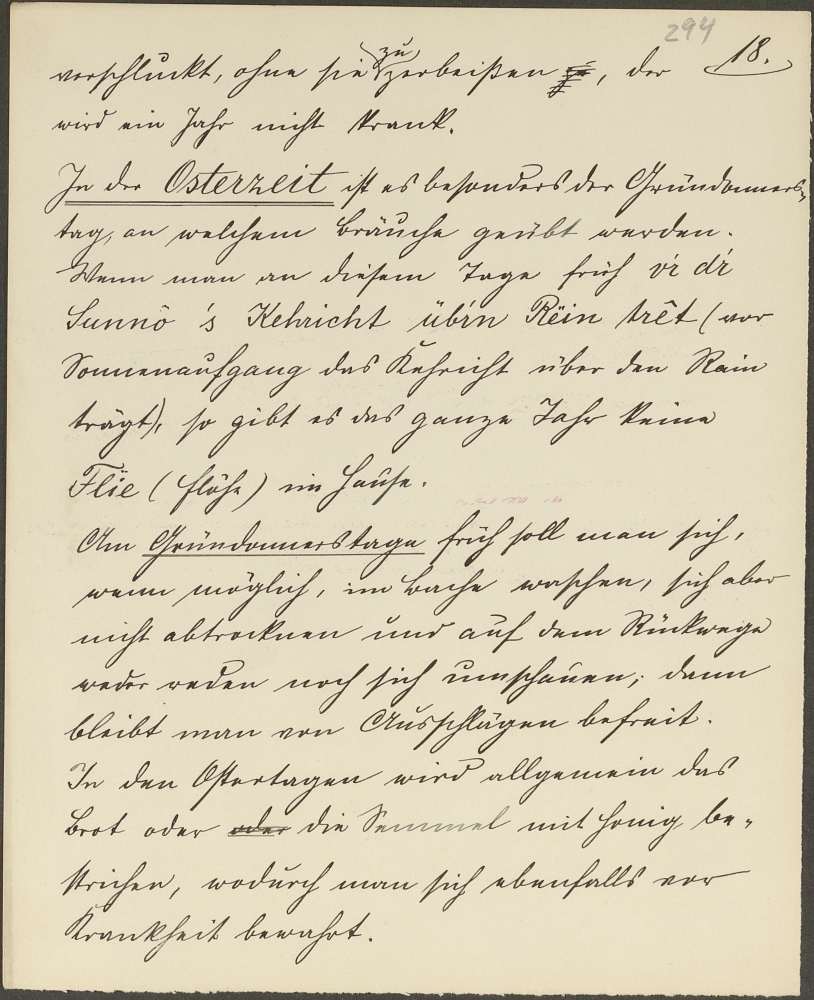 294
18.
verschluckt, ohne sie zu zerbeißen zu, der
wird ein Jahr nicht krank.
In der Osterzeit ist es besonders der Gründonners-
tag, an welchem Bräuche geübt werden.
Wenn man an diesem Tage früh vi di
Sunnô 's Kehricht übin Rëin trêt (vor
Sonnenaufgang das Kehricht über den Rain
trägt), so gibt es das ganze Jahr keine
Flïe (Flöhe) im Hause.
Am Gründonnerstage früh soll man sich,
wenn möglich, im Bache waschen, sich aber
nicht abtrocknen und auf dem Rückwege
weder reden noch sich umschauen; dann
bleibt man von Ausschlägen befreit.
In den Ostertagen wird allgemein das
Brot oder oder die Semmel mit Honig be-
strichen, wodurch man sich ebenfalls vor
Krankheit bewahrt.